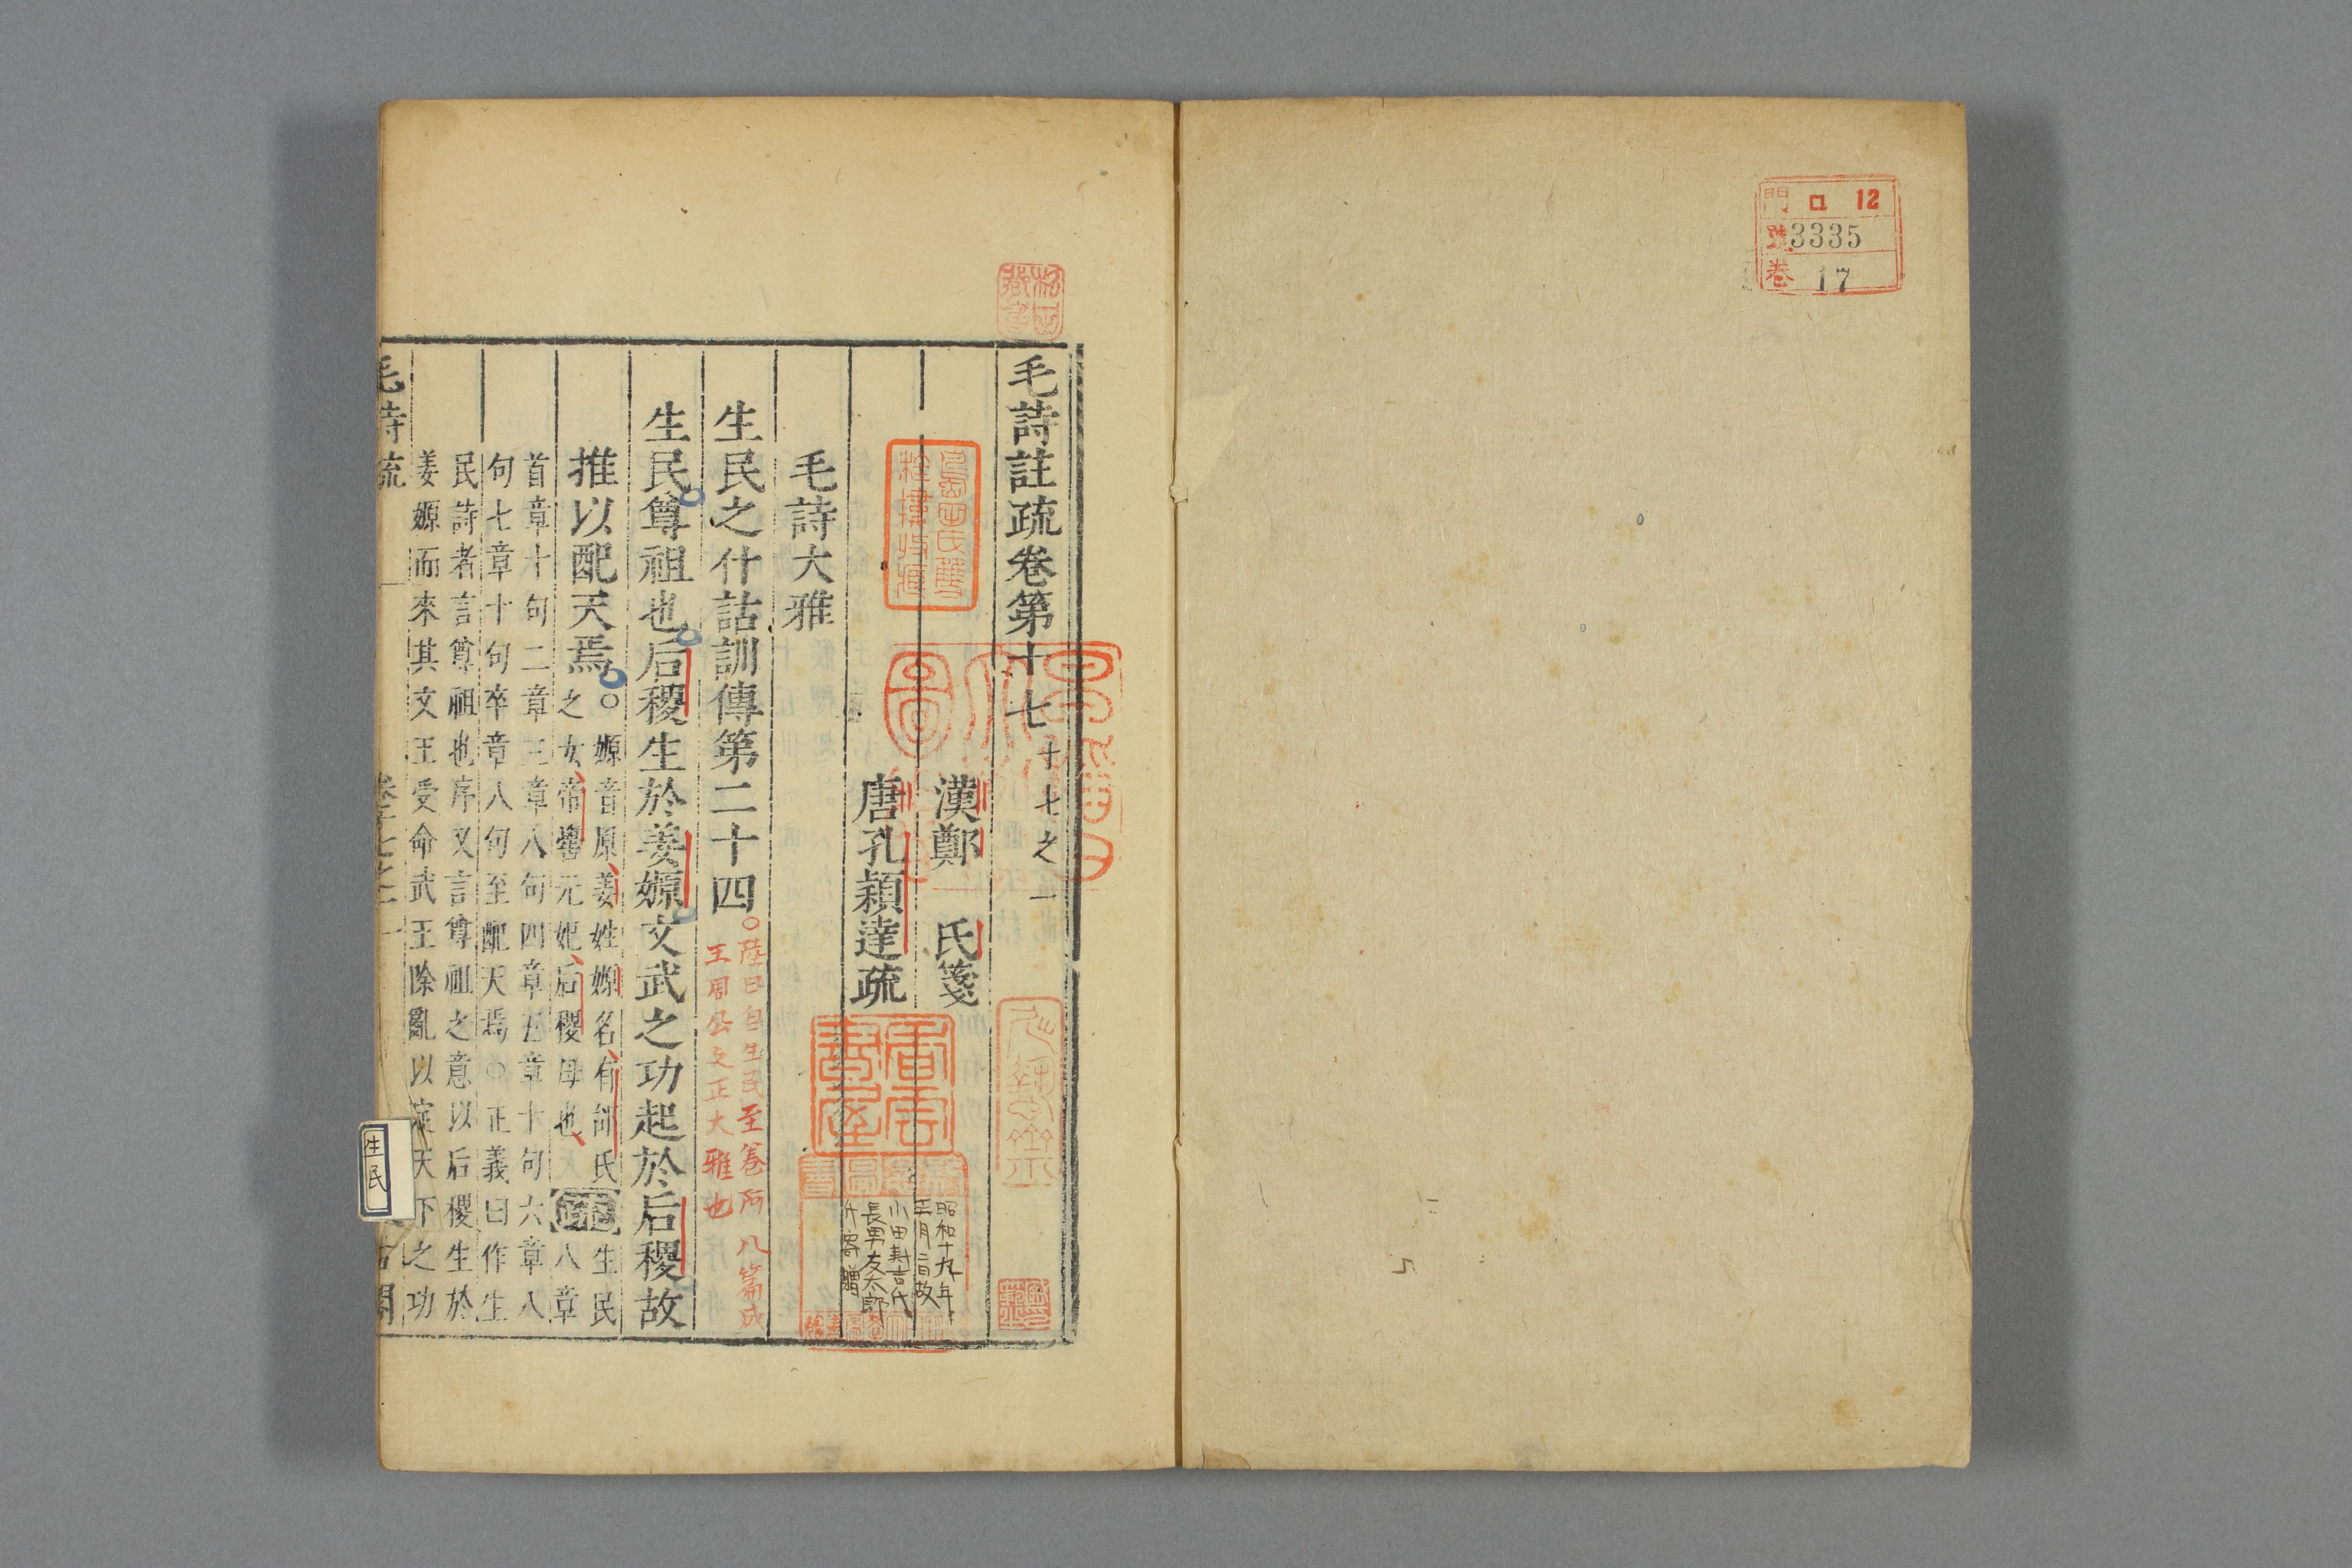 門 ロ 12
號 3335
卷 17
毛詩註疏卷第十七 十七之一
漢鄭 氏箋
唐孔穎達疏
毛詩大雅
生民之什詁訓傳第二十四
○陸曰自生民至卷阿八篇成
王周公之正大雅也
生民尊祖也后稷生於姜嫄文武之功起於后稷故
推以配天焉
○嫄音原姜姓嫄名有邰氏
之女帝嚳元妃后稷母也
疏
生民
八章
首章十句二章三章八句四章五章十句六章八
句七章十句卒章八句至配天焉○正義曰作生
民詩者言尊祖也序又言尊祖之意以后稷生於
姜嫄而來其文王受命武王除亂以定天下之功
毛詩疏
卷十七之一 一
古閣
生民
昭和十九年
五月二日故
小田
吉氏
長男友太郎
氏寄贈